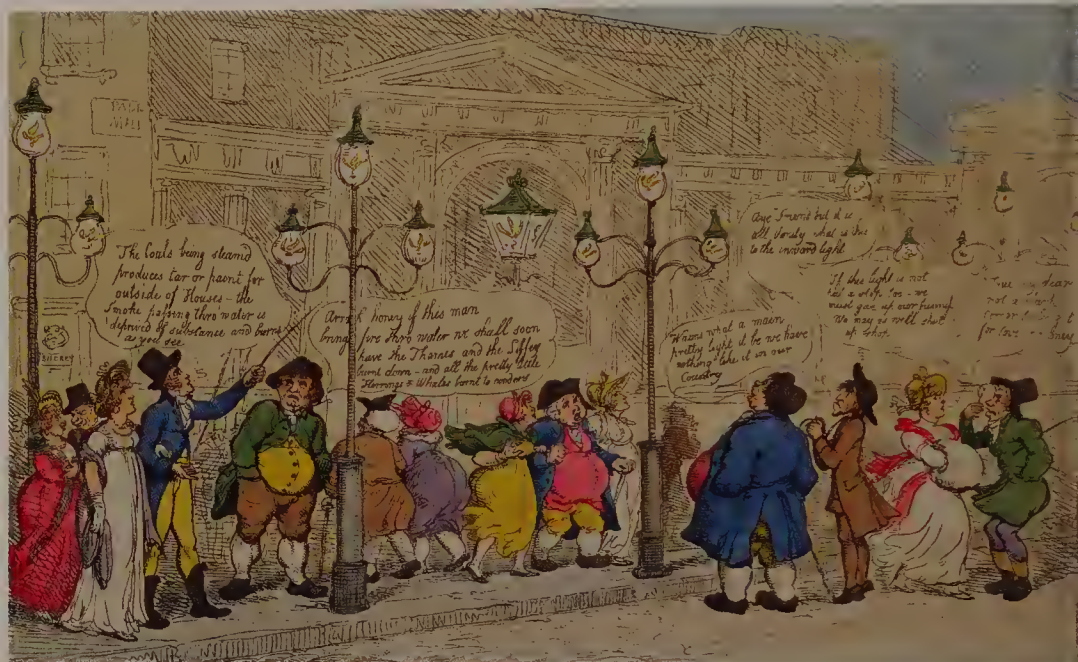 PALL
MALL
The Coals being steamed
produces tar or paint for
outside of Houses - the
Smoke passing thro water is
deprived of substance and burns
as you see
Arrah honey if this man
brings fire thro water we shall soon
have the Thames and the Liffey
burnt down - and all the pretty little
Herrings & Whales burnt to cinders
Wauns what a main
pretty light it be we have
nothing like it in our
Country
Aye Friend but it is
all Vanity what is this
to the inward light
If this light is not
put a stop to - we
must give up our
We may as well shut
up shop
dear
not a
for love